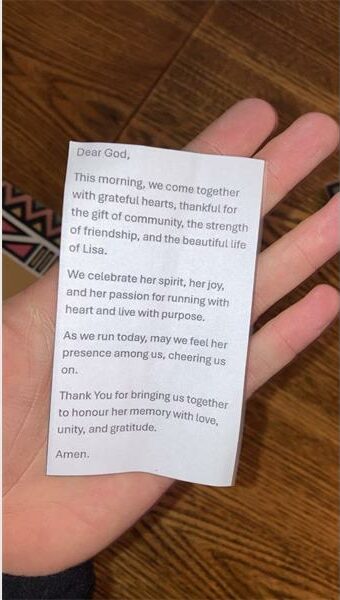 Dear God,
This morning, we come together
with grateful hearts, thankful for
the gift of community, the strength
of friendship, and the beautiful life
of Lisa.
We celebrate her spirit, her joy,
and her passion for running with
heart and live with purpose.
As we run today, may we feel her
presence among us, cheering us
on.
Thank You for bringing us together
to honour her memory with love,
unity, and gratitude.
Amen.